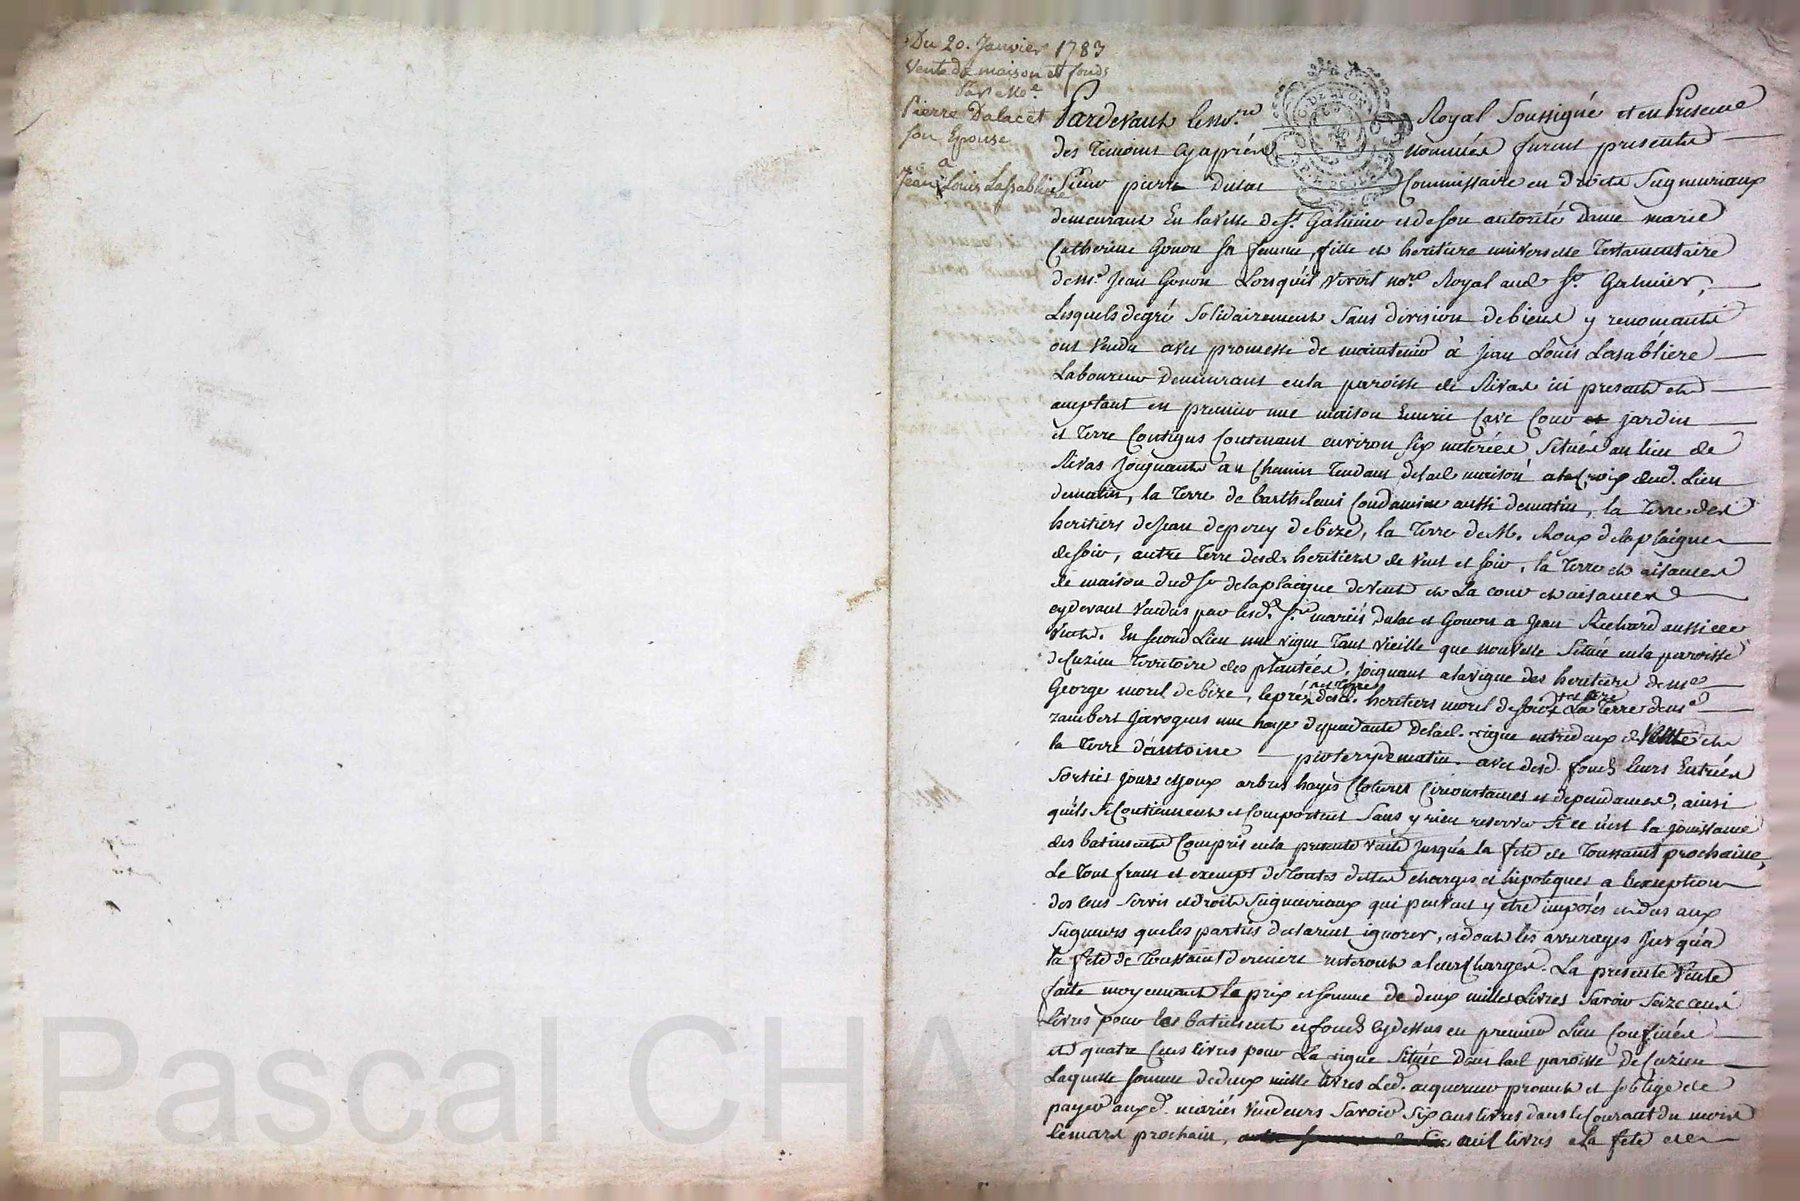 Du 20. Janvier 1783
Vente de maison et fonds
Par Me
Pierre Dalac et
son Epouse
a
Jean Louis Lassabliere
Pardevant le no.re Royal Soussigné et en Presence
des Temoins cy après nommés furent presents
Sieur pierre Dulac Commissaire en droits Seigneuriaux
demeurant En la ville de St. Galmier et de son autorité dame marie
Catherine Gonon sa femme, fille et heritiere universelle Testamentaire
de Me. Jean Gonon Lorsquil vivoit nore. Royal aud. St. Galmier,
Lesquels de gré Solidairement Sans division de biens y renonçants
ont vendu avec promesse de maintenir à Jean Louis Lasabliere
Laboureur demeurant en la paroisse de Rivas ici present et
acceptant en premier une maison Ecurie Cave Cour et jardin
et Terre Contigus Contenant environ Six meterées Situés au lieu de
Rivas Joignants au Chemin Tendant de lad. maison a la Croix dud. Lieu
de matin, la Terre de barthelemi Condamine aussi de matin, la Terre des
heritiers de Jean deperey de bize, la Terre de M. Roux de laplaigne
de soir, autre Terre desd. heritiers de vent et soir, la Terre et aisances
de maison dud. Sr. delaplaigne de vent et La cour et aisances
cy devant vendus par lesd. Srs. mariés Dulac et Gonon a Jean Richard aussi de
vent. En Second Lieu une vigne Tant vieille que nouvelle Située en la paroisse
de Cuzieu Territoire des plantées, joignant a la vigne des heritiers de Me
George morel de bize, le pré et terre desd. heritiers morel de soir La Terre de Me
rambert javoques une haye dependante de lad. vigne entre deux de et
la Terre d'antoine de matin. avec desd. fonds leurs Entrées
Sorties jours et joux arbres hayes Clotures Circonstances et dependances, ainsi
quils Se Contiennent et Comportent Sans y rien reserver Si ce n'est la jouissance
des batiments Compris en la presente vente jusqu'a la fete de Toussaint prochaine,
Le Tout franc et exempt de Toutes dettes charges et hipoteques a l'exception
des cens Servis et droits Seigneuriaux qui peuvent y etre imposés et dus aux
Seigneurs que les parties declarent ignorer, et dont les arrerages Jusqu'a
la fete de Toussaint derniere resteront a leurs Charges. La presente Vente
faite moyennant le prix et somme de deux milles Livres Savoir Seize cens
Livres pour les batiments et fonds cydessus en premier Lieu Confinés
et quatre Cens livres pour La vigne Située dans lad. paroisse de Cuzieu
Laquelle somme de deux mille livres Led. acquereur promet et s'oblige de
payer auxd. mariés vendeurs Savoir Six cens livres dans le Courant du mois
de mars prochain, mil livres a la fete de
Pascal CHA